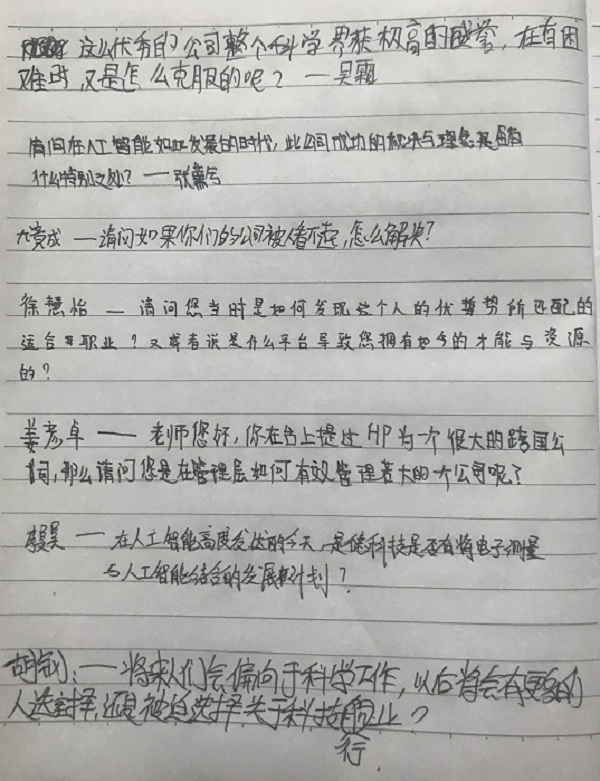 这么优秀的公司整个科学界获极高的盛誉，在有困
难时又是怎么克服的呢？——吴霜
请问在人工智能如此发展的时代，此公司成功的秘诀与理念是否有
什么特别之处？——张
竟成 — 请问如果你们的公司被人看不起，怎么解决？
徐慧怡 — 请问您当时是如何发现您个人的优势所匹配的
运合职业？又或者说是什么平台导致您拥有如今的才能与资源
的？
姜彦卓 —— 老师您好，你在台上提过HP为一个很大的跨国公
司，那么请问您是在管理层如何有效管理若大的一个公司呢？
—— 在人工智能高度发达的今天，是德科技是否有将电子测量
与人工智能结合的发展计划？
胡 ：— 将来人们会偏向于科学工作，以后将会有更多的
人选择，还是被迫选择关于科技行业？
行